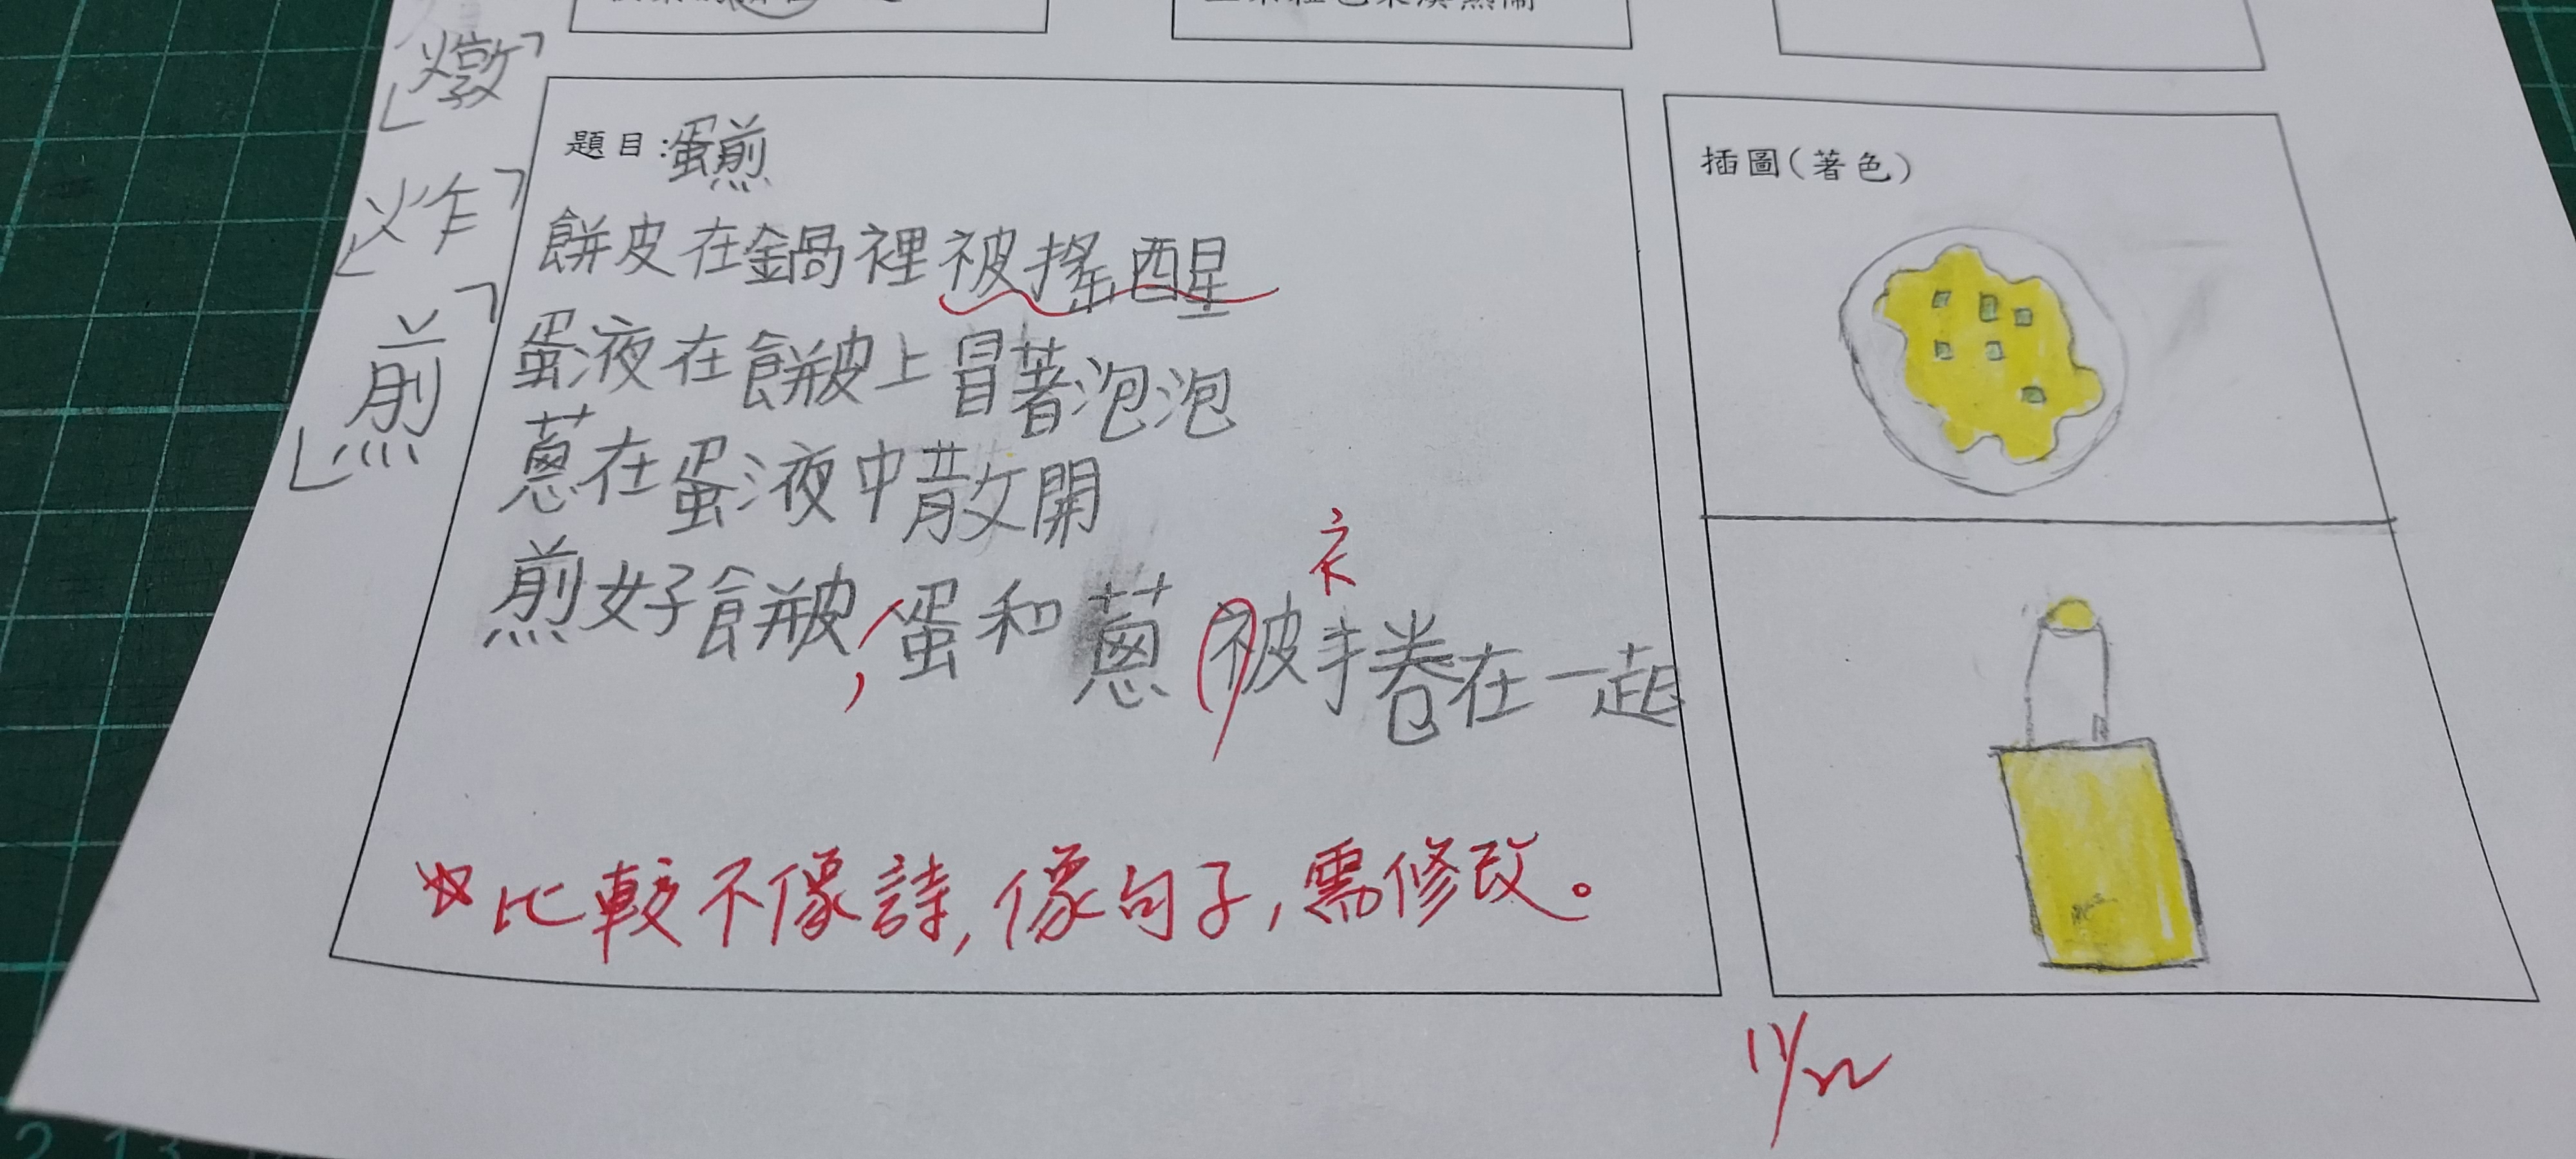 「燉」
「炸」
「煎」
題目:蛋煎
餅皮在鍋裡被搖醒
蛋液在餅皮上冒著泡泡
蔥在蛋液中散開
煎好餅皮,蛋和蔥被捲在一起
衣
☆比較不像詩,像句子,需修改。
插圖(著色)
11/22